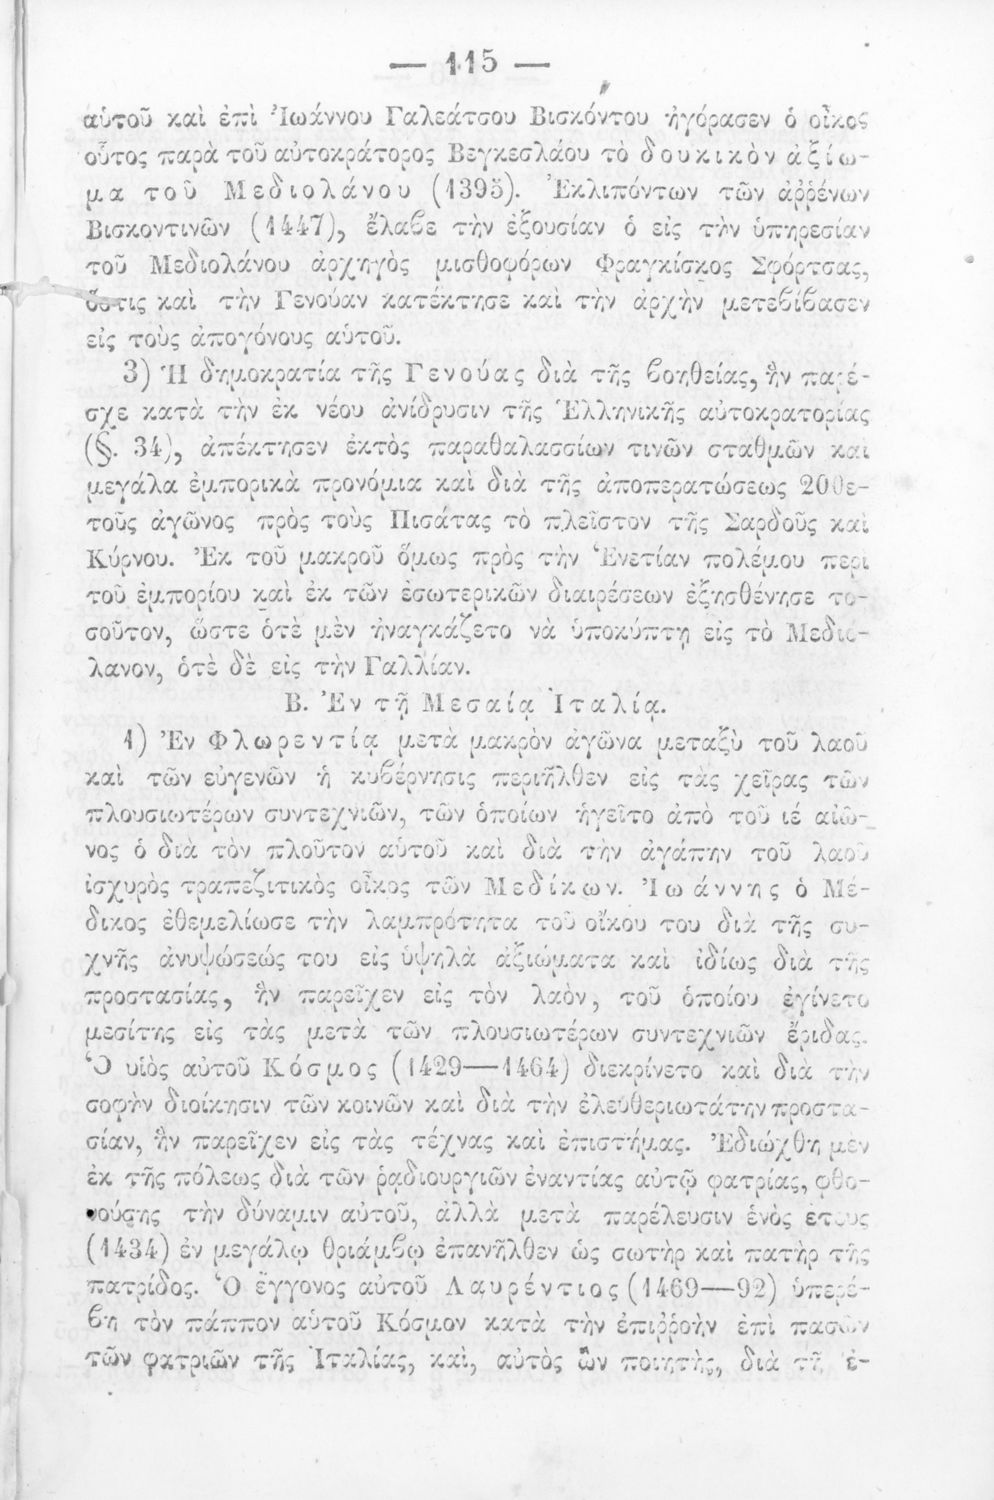 — 115 —
αὐτοῦ καὶ ἐπὶ Ἰωάννου Γαλεάτσου Βισκόντου ἠγόρασεν ὁ οἶκος
οὗτος παρὰ τοῦ αὐτοκράτορος Βεγκεσλάου τὸ δουκικὸν ἀξίω-
μα τοῦ Μεδιολάνου (1395). Ἐκλιπόντων τῶν ἀῤῥένων
Βισκοντινῶν (1447), ἔλαβε τὴν ἐξουσίαν ὁ εἰς τὴν ὑπηρεσίαν
τοῦ Μεδιολάνου ἀρχηγὸς μισθοφόρων Φραγκίσκος Σφόρτσας,
ὅστις καὶ τὴν Γενούαν κατέκτησε καὶ τὴν ἀρχὴν μετεβίβασεν
εἰς τοὺς ἀπογόνους αὐτοῦ.
3) Ἡ δημοκρατία τῆς Γενούας διὰ τῆς βοηθείας, ἣν παρέ-
σχε κατὰ τὴν ἐκ νέου ἀνίδρυσιν τῆς Ἑλληνικῆς αὐτοκρατορίας
(§. 34), ἀπέκτησεν ἐκτὸς παραθαλασσίων τινῶν σταθμῶν καὶ
μεγάλα ἐμπορικὰ προνόμια καὶ διὰ τῆς ἀποπερατώσεως 200ε-
τοῦς ἀγῶνος πρὸς τοὺς Πισάτας τὸ πλεῖστον τῆς Σαρδοῦς καὶ
Κύρνου. Ἐκ τοῦ μακροῦ ὅμως πρὸς τὴν Ἑνετίαν πολέμου περὶ
τοῦ ἐμπορίου καὶ ἐκ τῶν ἐσωτερικῶν διαιρέσεων ἐξησθένησε το-
σοῦτον, ὥστε ὁτὲ μὲν ἠναγκάζετο νὰ ὑποκύπτῃ εἰς τὸ Μεδιό-
λανον, ὁτὲ δὲ εἰς τὴν Γαλλίαν.
Β. Ἐν τῇ Μεσαίᾳ Ἰταλίᾳ.
1) Ἐν Φλωρεντίᾳ μετὰ μακρὸν ἀγῶνα μεταξὺ τοῦ λαοῦ
καὶ τῶν εὐγενῶν ἡ κυβέρνησις περιῆλθεν εἰς τὰς χεῖρας τῶν
πλουσιωτέρων συντεχνιῶν, τῶν ὁποίων ἡγεῖτο ἀπὸ τοῦ ιέ αἰῶ-
νος ὁ διὰ τὸν πλοῦτον αὐτοῦ καὶ διὰ τὴν ἀγάπην τοῦ λαοῦ
ἰσχυρὸς τραπεζιτικὸς οἶκος τῶν Μεδίκων. Ἰωάννης ὁ Μέ-
δικος ἐθεμελίωσε τὴν λαμπρότητα τοῦ οἴκου του διὰ τῆς συ-
χνῆς ἀνυψώσεώς του εἰς ὑψηλὰ ἀξιώματα καὶ ἰδίως διὰ τῆς
προστασίας, ἣν παρεῖχεν εἰς τὸν λαὸν, τοῦ ὁποίου ἐγίνετο
μεσίτης εἰς τὰς μετὰ τῶν πλουσιωτέρων συντεχνιῶν ἔριδας.
Ὁ υἱὸς αὐτοῦ Κόσμος (1429—1464) διεκρίνετο καὶ διὰ τὴν
σοφὴν διοίκησιν τῶν κοινῶν καὶ διὰ τὴν ἐλευθεριωτάτην προστα-
σίαν, ἣν παρεῖχεν εἰς τὰς τέχνας καὶ ἐπιστήμας. Ἐδιώχθη μὲν
ἐκ τῆς πόλεως διὰ τῶν ῥᾳδιουργιῶν ἐναντίας αὐτῷ φατρίας, φθο-
νούσης τὴν δύναμιν αὐτοῦ, ἀλλὰ μετὰ παρέλευσιν ἑνὸς ἔτους
(1434) ἐν μεγάλῳ θριάμβῳ ἐπανῆλθεν ὡς σωτὴρ καὶ πατὴρ τῆς
πατρίδος. Ὁ ἔγγονος αὐτοῦ Λαυρέντιος (1469—92) ὑπερέ-
βη τὸν πάππον αὐτοῦ Κόσμον κατὰ τὴν ἐπιῤῥοὴν ἐπὶ πασῶν
τῶν φατριῶν τῆς Ἰταλίας, καὶ, αὐτὸς ὢν ποιητὴς, διὰ τῆ ἐ-